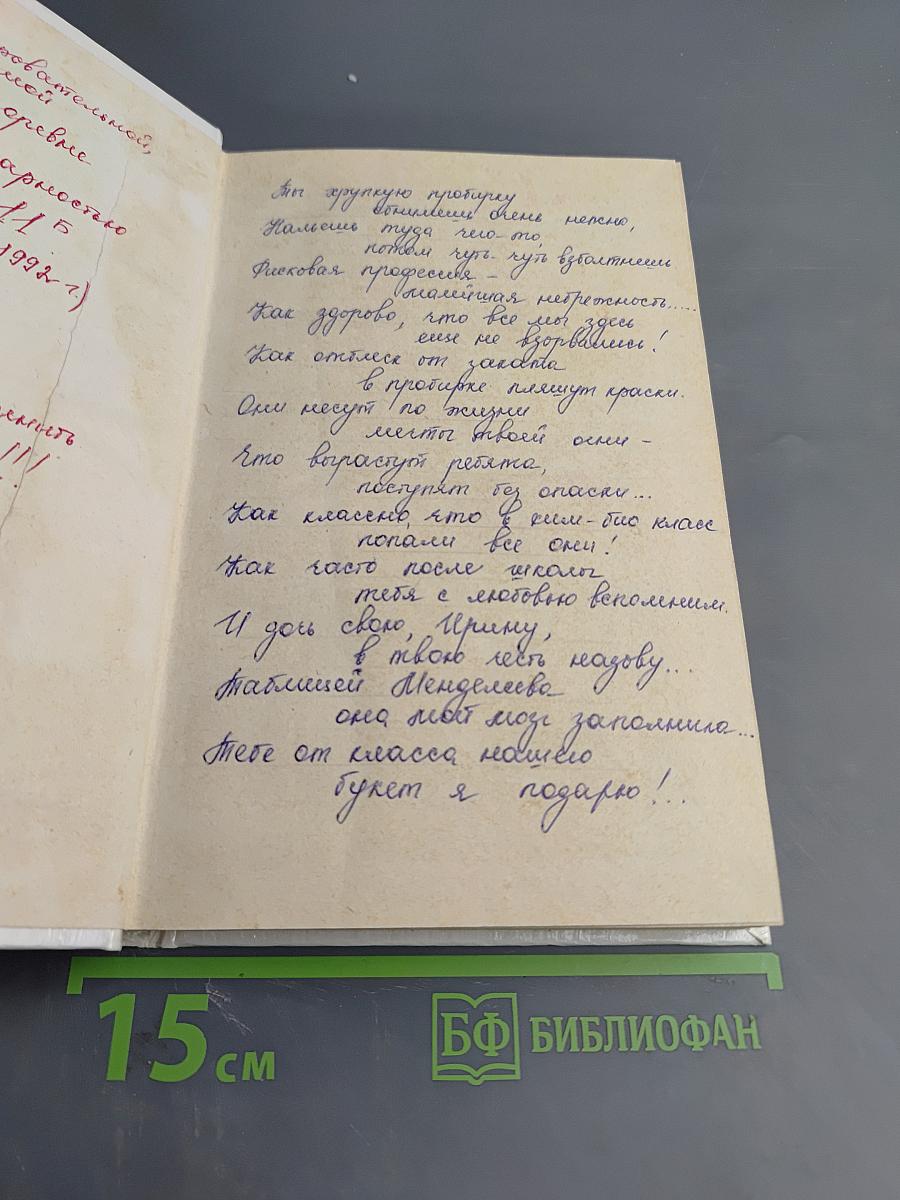 зовательной,
мой
арностью
11 Б
1992 г.)
!!!
Ты хрупкую пробирку
обнимешь очень нежно,
Нальешь туда чего-то,
потом чуть-чуть взболтнешь
Рисковая профессия –
малейшая небрежность.....
Как здорово, что все мы здесь
еще не взорвались!
Как отблеск от заката
в пробирке пляшут краски.
Они несут по жизни
мечты твоей огни –
Что вырастут ребята,
поступят без опаски...
Как классно, что в хим-био класс
попали все они!
Как часто после школы
тебя с любовью вспомним.
И дочь свою, Ирину,
в твою честь назову...
Таблицей Менделеева
она мой мозг заполнила...
Тебе от класса нашего
букет я подарю!..
15 см
БФ БИБЛИОФАН